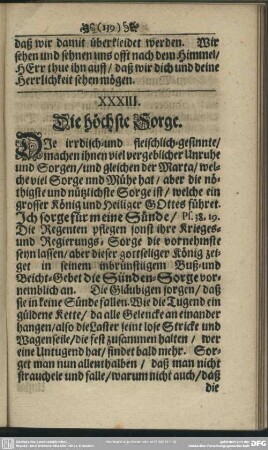 (139)
daß wir damit überkleidet werden. Wir
sehen und sehnen uns offt nach dem Himmel/
HErr thue ihn auff/ daß wir dich und deine
Herrlichkeit sehen mögen.
XXXIII.
Die höchste Sorge.
DIe irrdisch-und fleischlich-gesinnte/
machen ihnen viel vergeblicher Unruhe
und Sorgen/ und gleichen der Marta/ wel-
che viel Sorge und Mühe hat/ aber die nö-
thigste und nützlichste Sorge ist/ welche ein
grosser König und Heiliger GOttes führet.
Ich sorge für meine Sünde/ Ps. 38. 19.
Die Regenten pflegen sonst ihre Krieges-
und Regierungs-Sorge die vornehmste
seyn lassen/ aber dieser gottseliger König zei-
get in seinem inbrünstigem Buß-und
Beicht-Gebet die Sünden-Sorge vor-
nemblich an. Die Gläubigen sorgen/ daß
sie in keine Sünde fallen. Wie die Tugend ein
güldene Kette/ da alle Gelencke an einander
hangen/ also die Laster seint lose Stricke und
Wagenseile/ die fest zusammen halten/ wer
eine Untugend hat/ findet bald mehr. Sor-
get man nun allenthalben/ daß man nicht
strauchele und falle/ warum nicht auch/ daß
die